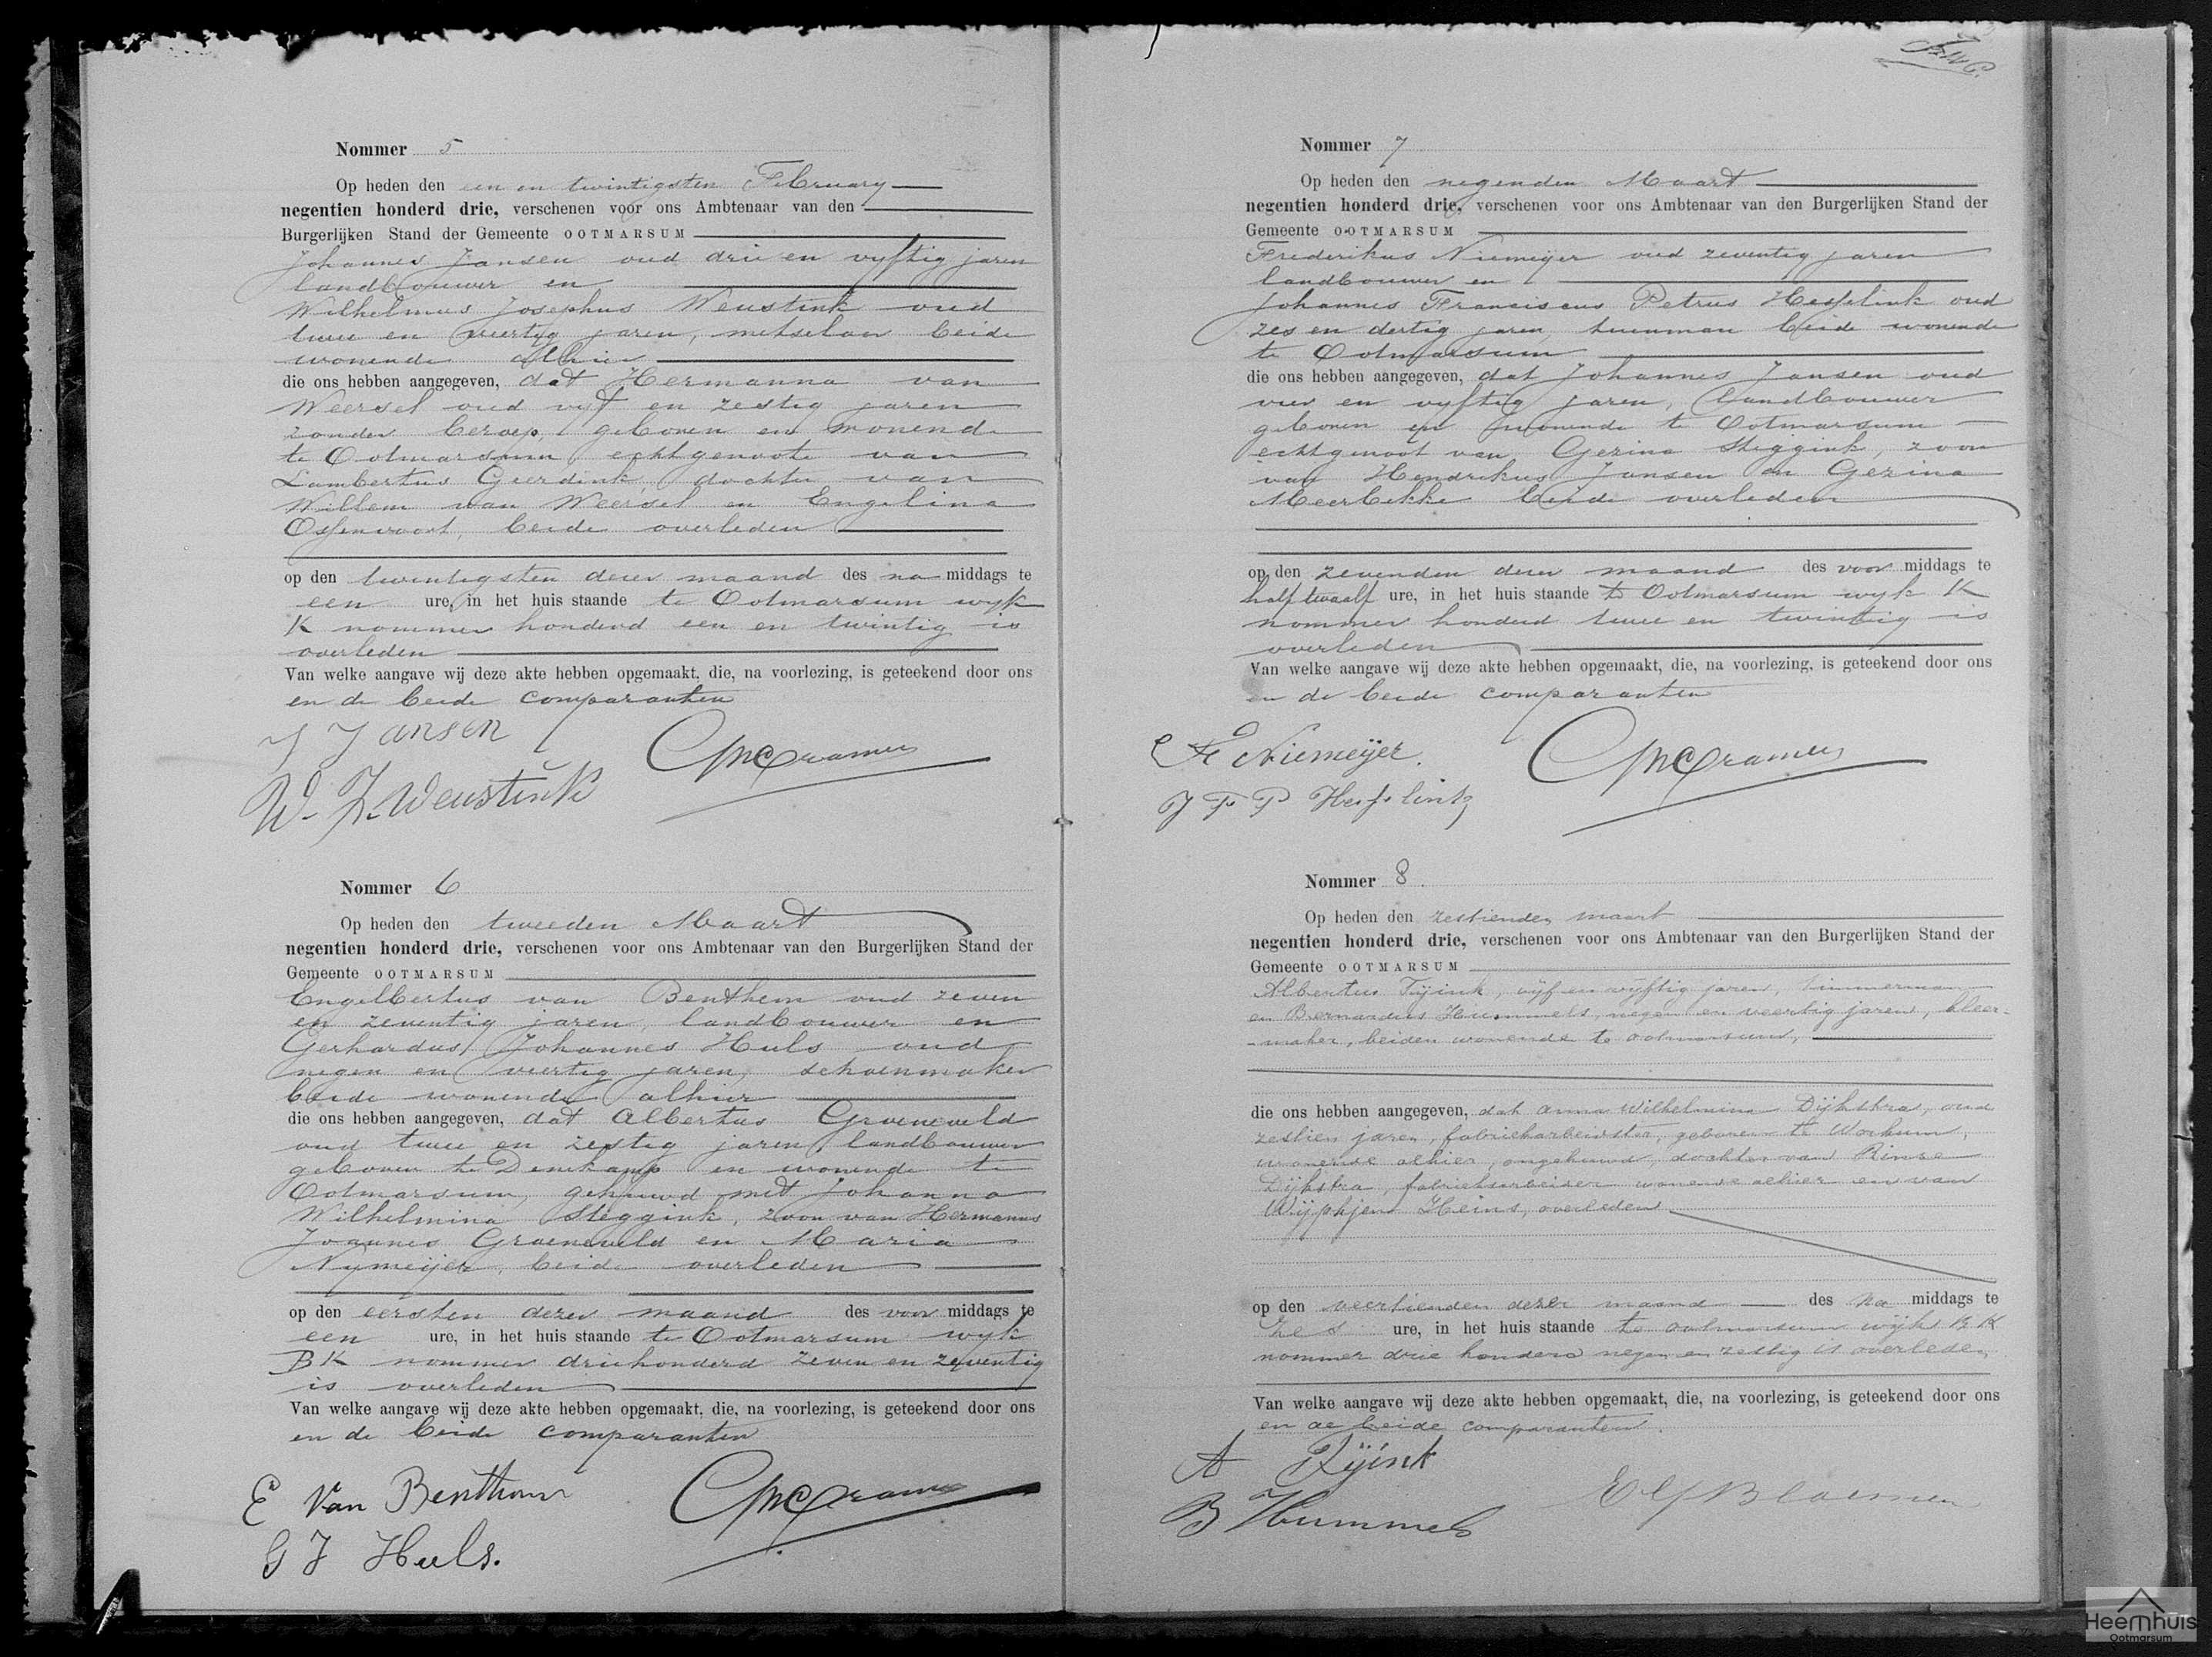 Nommer 5
Op heden den een en twintigsten February
negentien honderd drie, verschenen voor ons Ambtenaar van den
Burgerlijken Stand der Gemeente OOTMARSUM
Johannes Jansen oud drie en vyftig jaren
landbouwer en
Wilhelmus Josephus Weustink oud
twee en veertig jaren, metselaar beide
wonende alhier
die ons hebben aangegeven, dat Hermanna van
Weersel oud vyf en zestig jaren
zonder beroep, geboren en wonende
te Ootmarsum echtgenoote van
Lambertus Geerdink, dochter van
Willem van Weersel en Engelina
Ossenvoort, beide overleden
op den twintigsten dezer maand des na middags te
een ure, in het huis staande te Ootmarsum wyk
K nommer honderd een en twintig is
overleden
Van welke aangave wij deze akte hebben opgemaakt, die, na voorlezing, is geteekend door ons
en de beide comparanten
J Jansen
W. J. Weustink
Cramer
Nommer 6
Op heden den tweeden Maart
negentien honderd drie, verschenen voor ons Ambtenaar van den Burgerlijken Stand der
Gemeente OOTMARSUM
Engelbertus van Benthem oud zeven
en zeventig jaren, landbouwer en
Gerhardus Johannes Huls oud
negen en veertig jaren, schoenmaker
beide wonende alhier
die ons hebben aangegeven, dat Albertus Groeneveld
oud twee en zestig jaren, landbouwer
geboren te Denekamp en wonende te
Ootmarsum, gehuwd met Johanna
Wilhelmina Steggink, zoon van Hermannus
Joannes Groeneveld en Maria
Nymeijer, beide overleden
op den eersten dezer maand des voor middags te
een ure, in het huis staande te Ootmarsum wyk
BK nommer driehonderd zeven en zeventig
is overleden
Van welke aangave wij deze akte hebben opgemaakt, die, na voorlezing, is geteekend door ons
en de beide comparanten
E Van Benthem
G J Huls.
Cramer
Nommer 7
Op heden den negenden Maart
negentien honderd drie, verschenen voor ons Ambtenaar van den Burgerlijken Stand der
Gemeente OOTMARSUM
Frederikus Niemeijer oud zeventig jaren
landbouwer en
Johannes Franciscus Petrus Hesselink oud
zes en dertig jaren, tuinman beide wonende
te Ootmarsum
die ons hebben aangegeven, dat Johannes Jansen oud
vier en vyftig jaren, landbouwer
geboren en wonende te Ootmarsum
echtgenoot van Gezina Steggink, zoon
van Hendrikus Jansen en Gezina
Meerbekke beide overleden
op den zevenden dezer maand des voor middags te
half twaalf ure, in het huis staande te Ootmarsum wyk K
nommer honderd twee en twintig is
overleden
Van welke aangave wij deze akte hebben opgemaakt, die, na voorlezing, is geteekend door ons
en de beide comparanten
Fr Niemeijer.
J F P Hesselink
Cramer
Nommer 8.
Op heden den zestienden maart
negentien honderd drie, verschenen voor ons Ambtenaar van den Burgerlijken Stand der
Gemeente OOTMARSUM
Albertus Tijink, vijf en vyftig jaren, timmerman
en Bernardus Hummels, negen en veertig jaren, kleer-
-maker, beiden wonende te ootmarsum,
die ons hebben aangegeven, dat anna Wilhelmina Dijkstra, oud
zestien jaren, fabriekarbeidster, geboren te Workum,
wonende alhier, ongehuwd, dochter van Rinse
Dijkstra, fabrieksarbeider wonende alhier en van
Wijpkjen Heins, overleden
op den veertienden dezer maand des na middags te
zes ure, in het huis staande te ootmarsum wijk BK
nommer drie honderd negen en zestig is overleden
Van welke aangave wij deze akte hebben opgemaakt, die, na voorlezing, is geteekend door ons
en de beide comparanten.
A Tijink
B Hummels
Bloemen
Heemhuis
Ootmarsum